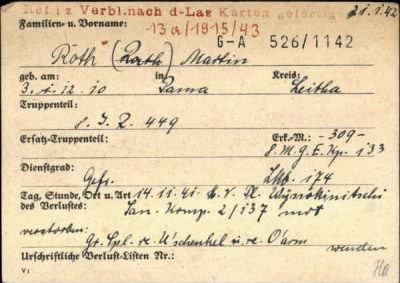 Notiz Verbl. nach d-Lag Karten gefertigt 21.1.42
Familien- u. Vorname:
13a/1915/43
G-A 526/1142
Röth (Rath) Martin
geb. am: in Kreis:
3.1.12.10 Pama Leitha
Truppenteil:
8. J. R. 449
Ersatz-Truppenteil: Erk.-M.: -309-
8. M.G.E.Kp. 133
Dienstgrad:
Gefr. 174
Tag, Stunde, Ort u. Art 14.11.41
des Verlustes: San. Komp. 2/137
verstorben:
Gr. Spl. re. U'schenkel u. re. O'arm
wenden
Urschriftliche Verlust-Listen Nr.:
V1